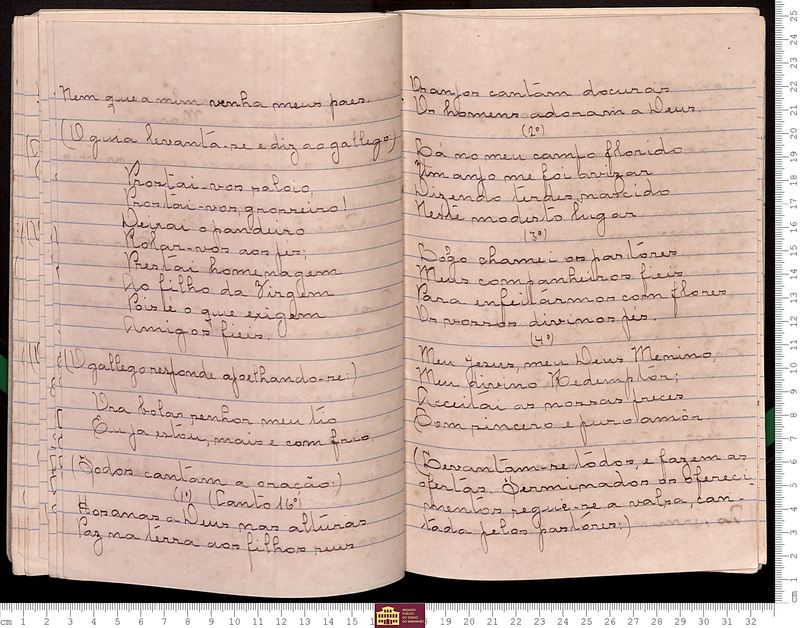 Nem que a mim venha meus paes.
(O guia levanta-se e diz ao gallego:)
Prostai-vos saloio,
Prostai-vos, grosseiro!
Deixai o pandeiro
Rolar-vos aos pés;
Prestai homenagem
Ao filho da Virgem
Pois é o que exigem
Amigos fieis.
(O gallego responde ajoelhando-se:)
Ora holas, senhor meu tio
Eu ja estou, mais e com frio.
(Todos cantam a oração:)
(1º) (Canto 16º)
Hosanas a Deus nas altúras
Paz na térra aos filhos seus
Os anjos cantam docuras
Os homens adoram a Deus.
(2º)
Lá no meu campo florido
Um anjo me foi avizar
Dizendo terdes nascido
Neste modésto lugar
(3º)
Lôgo chamei os pastôres
Meus companheiros fieis
Para enfeitármos com flores
Os vossos divinos pés.
(4º)
Meu Jesus, meu Deus Menino,
Meu divino Redemptôr;
Acceitai as nossas preces
Com sincero e puro amôr.
(Levantam-se todos, e fazem as
ofertas. Terminados os ofereci-
mentos segue-se a valsa, can-
tada pelos pastôres:)
cm 1 2 3 4 5 6 7 8 9 10 11 12 13 14 15 16
ARQUIVO
PÚBLICO
DO ESTADO
DO MARANHÃO
18 19 20 21 22 23 24 25 26 27 28 29 30 31 32
cm 1 2 3 4 5 6 7 8 9 10 11 12 13 14 15 16 17 18 19 20 21 22 23 24 25